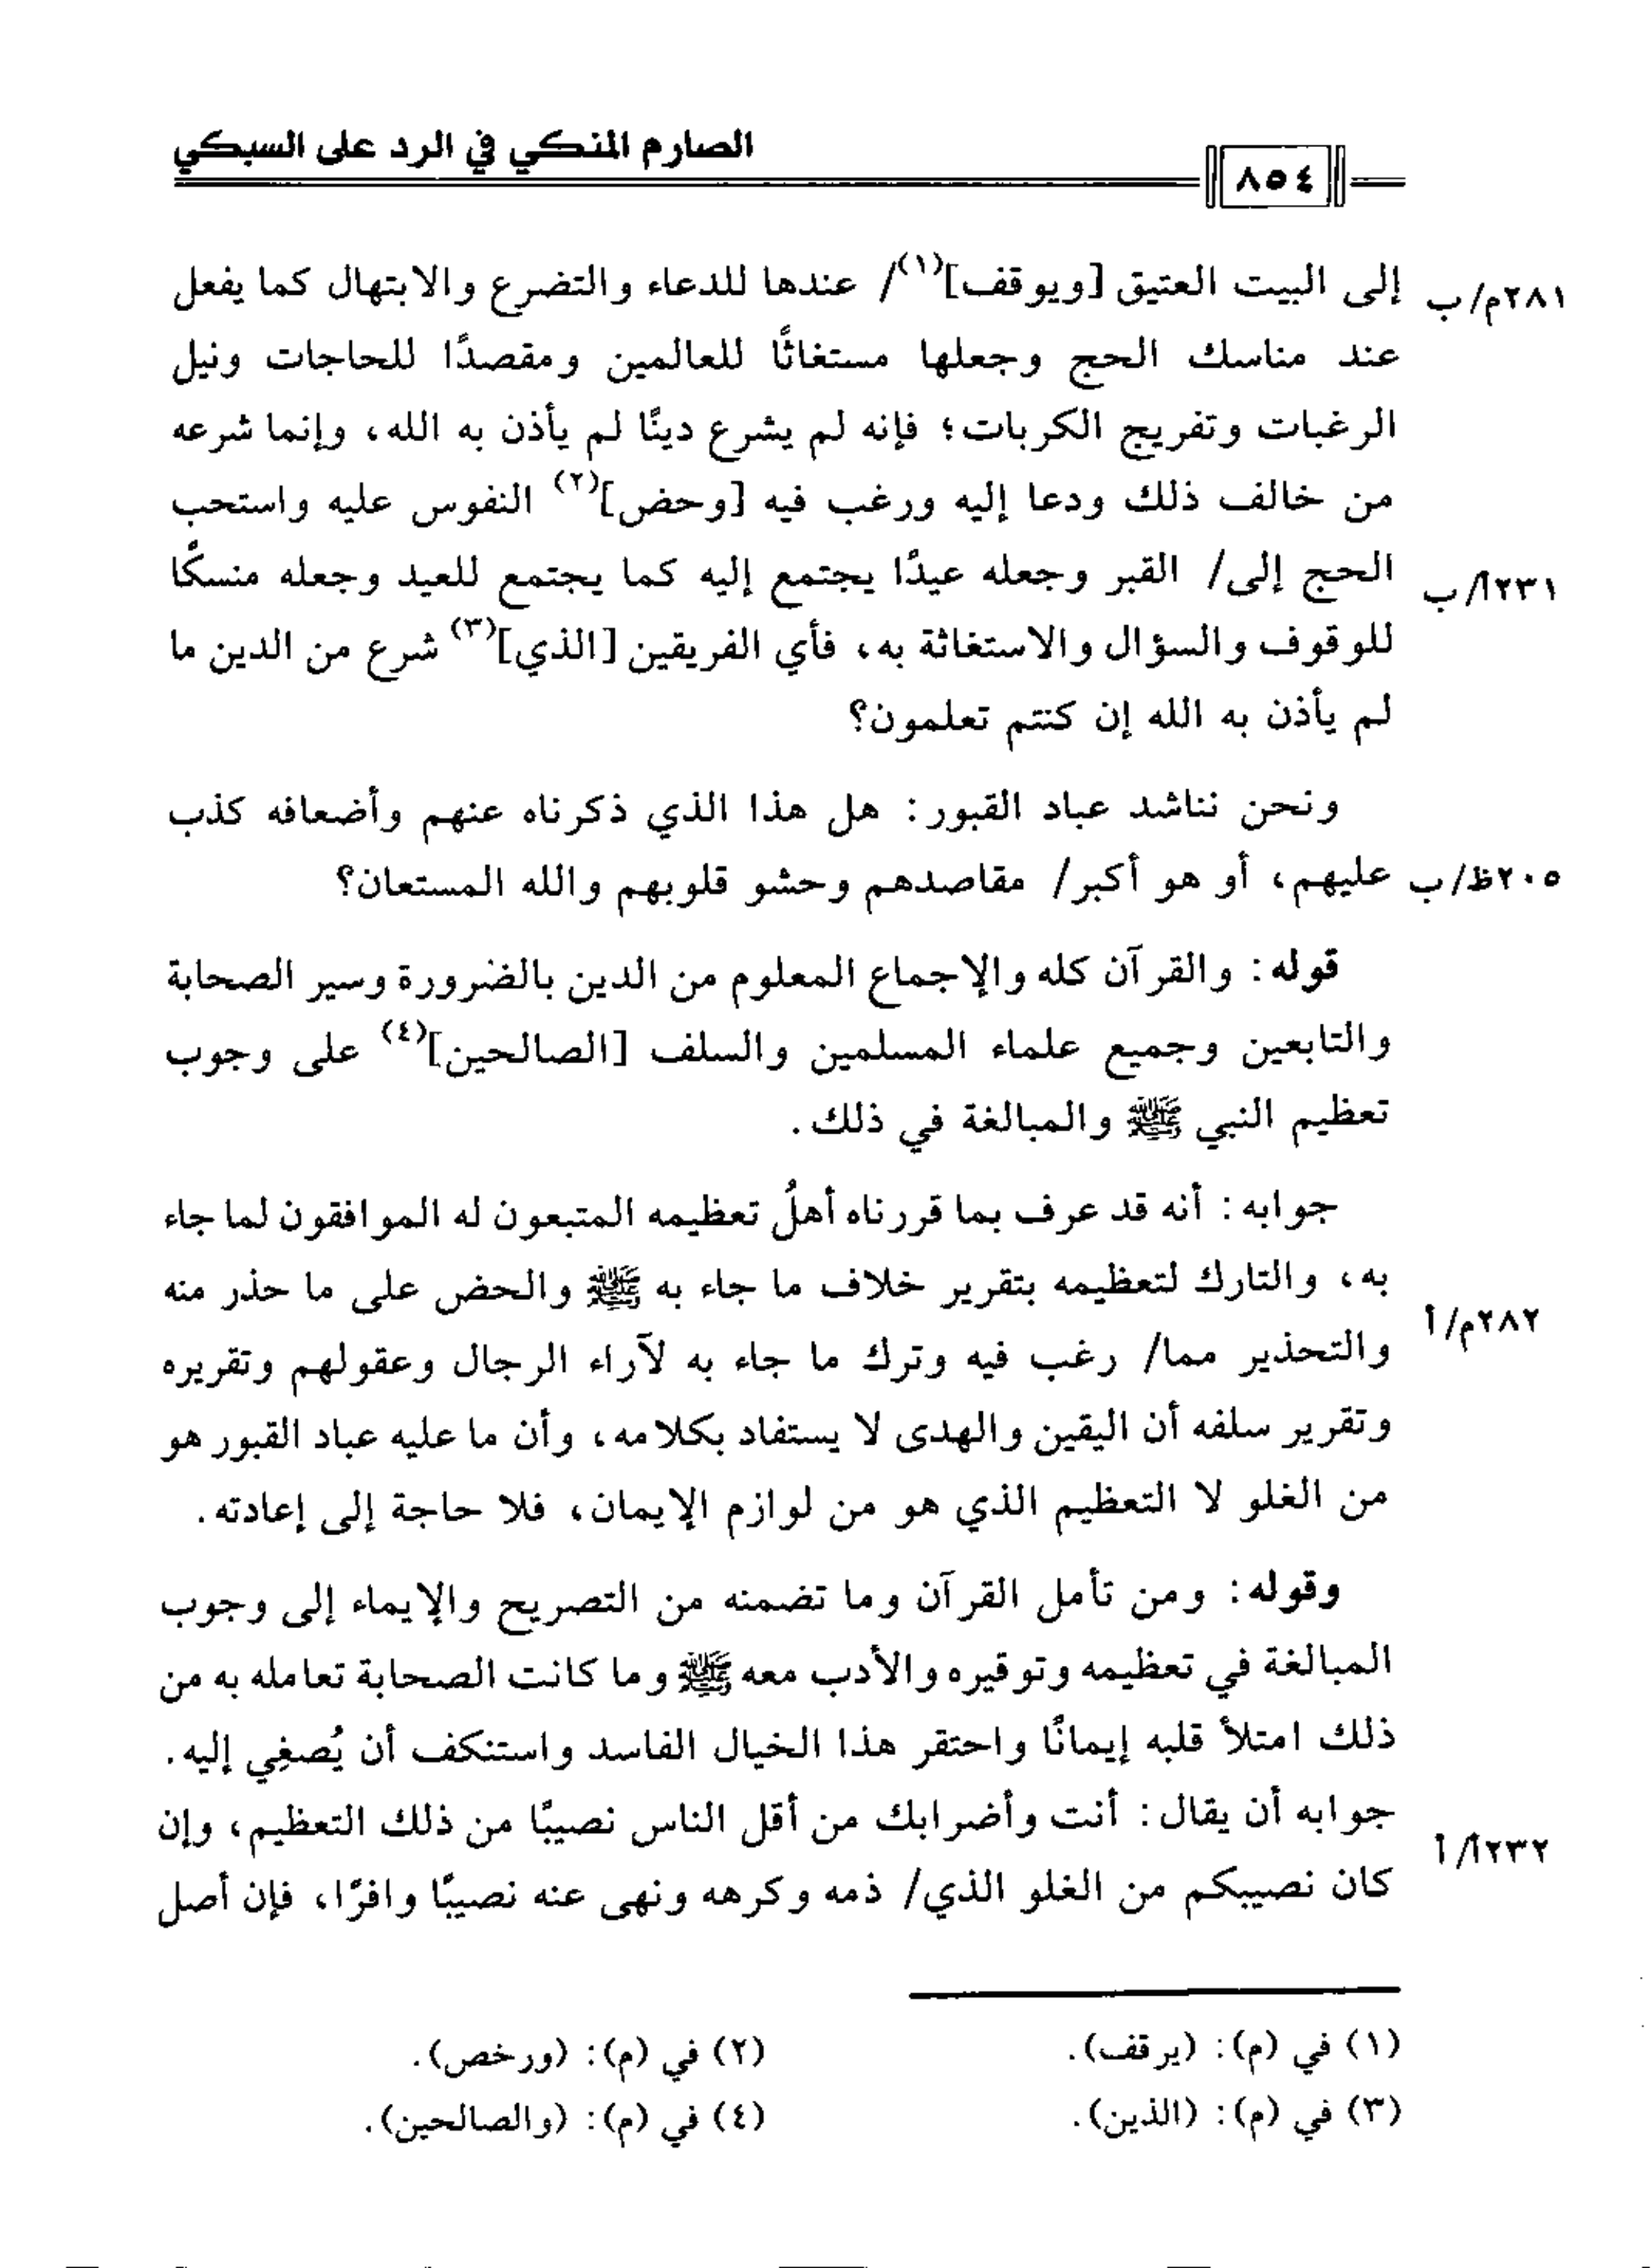 الصارم المنكي في الرد على السبكي
٨٥٤
٢٨١م/ب إلى البيت العتيق [ويوقف](١)/ عندها للدعاء والتضرع والابتهال كما يفعل
عند مناسك الحج وجعلها مستغاثًا للعالمين ومقصدًا للحاجات ونيل
الرغبات وتفريج الكربات؛ فإنه لم يشرع دينًا لم يأذن به الله، وإنما شرعه
من خالف ذلك ودعا إليه ورغب فيه [وحض](٢) النفوس عليه واستحب
٢٣١أ/ب الحج إلى/ القبر وجعله عيدًا يجتمع إليه كما يجتمع للعيد وجعله منسكًا
للوقوف والسؤال والاستغاثة به، فأي الفريقين [الذي](٣) شرع من الدين ما
لم يأذن به الله إن كنتم تعلمون؟
ونحن نناشد عباد القبور: هل هذا الذي ذكرناه عنهم وأضعافه كذب
٢٠٥ظ/ب عليهم، أو هو أكبر/ مقاصدهم وحشو قلوبهم والله المستعان؟
قوله: والقرآن كله والإجماع المعلوم من الدين بالضرورة وسير الصحابة
والتابعين وجميع علماء المسلمين والسلف [الصالحين](٤) على وجوب
تعظيم النبي ﷺ والمبالغة في ذلك.
جوابه: أنه قد عرف بما قررناه أهلُ تعظيمه المتبعون له الموافقون لما جاء
به، والتارك لتعظيمه بتقرير خلاف ما جاء به ﷺ والحض على ما حذر منه
٢٨٢م/أ والتحذير مما/ رغب فيه وترك ما جاء به لآراء الرجال وعقولهم وتقريره
وتقرير سلفه أن اليقين والهدى لا يستفاد بكلامه، وأن ما عليه عباد القبور هو
من الغلو لا التعظيم الذي هو من لوازم الإيمان، فلا حاجة إلى إعادته.
وقوله: ومن تأمل القرآن وما تضمنه من التصريح والإيماء إلى وجوب
المبالغة في تعظيمه وتوقيره والأدب معه ﷺ وما كانت الصحابة تعامله به من
ذلك امتلأ قلبه إيمانًا واحتقر هذا الخيال الفاسد واستنكف أن يُصغِي إليه.
جوابه أن يقال: أنت وأضرابك من أقل الناس نصيبًا من ذلك التعظيم، وإن
٢٣٢أ/أ كان نصيبكم من الغلو الذي/ ذمه وكرهه ونهى عنه نصيبًا وافرًا، فإن أصل
(١) في (م): (يرقف). (٢) في (م): (ورخص).
(٣) في (م): (الذين). (٤) في (م): (والصالحين).